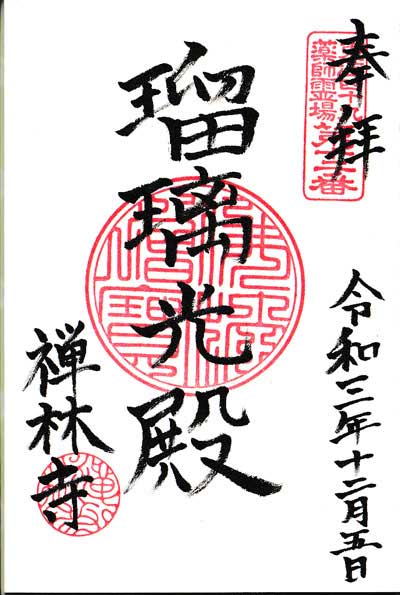 奉拝
薬師霊場
令和三年十二月五日
瑠璃光殿
禅林寺